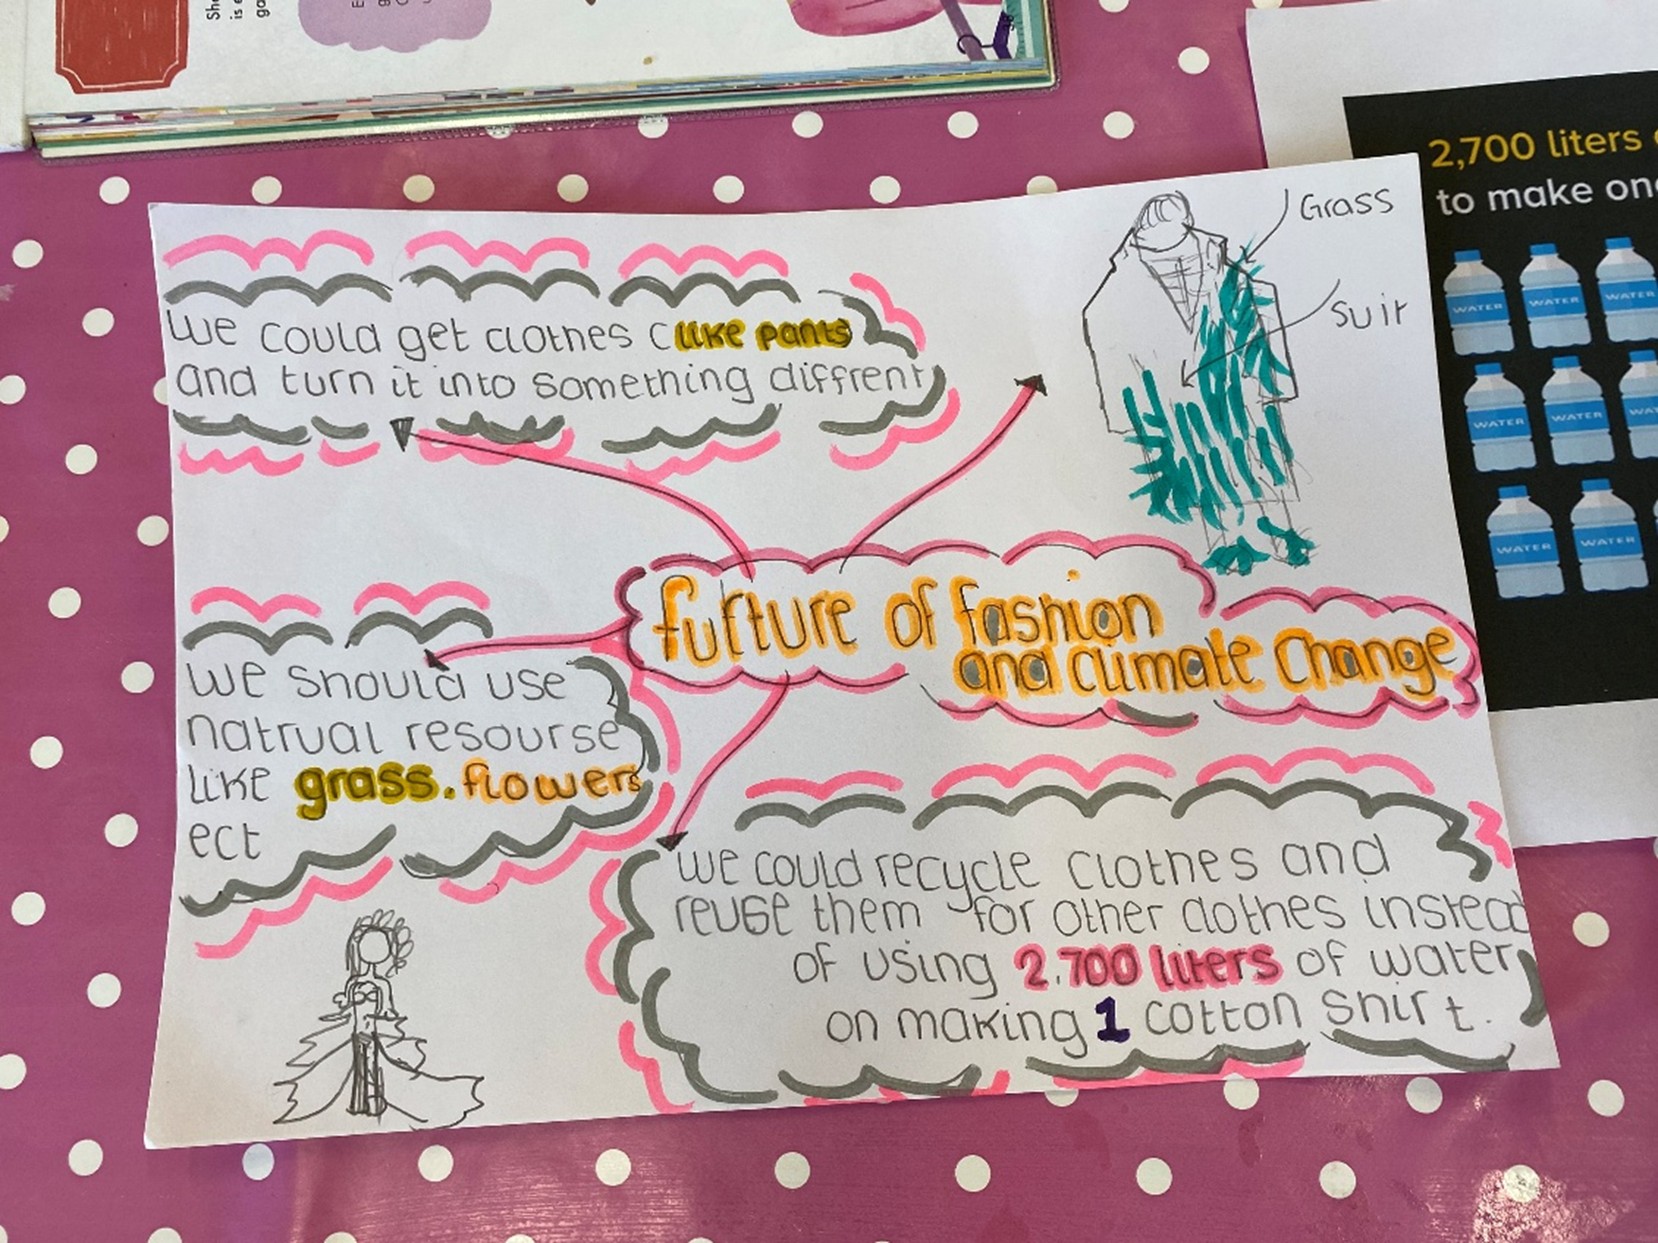 2,700 liters
to make one
WATER
WATER
WATER
WATER
WATER
WATER
WATER
Grass
Suit
We could get clothes (like pants
and turn it into something diffrent)
furture of fashion
and climate Change
We should use
natrual resourse
like grass.flowers
ect
We could recycle clothes and
reuse them for other clothes instead
of using 2.700 liters of water
on making 1 cotton shirt.